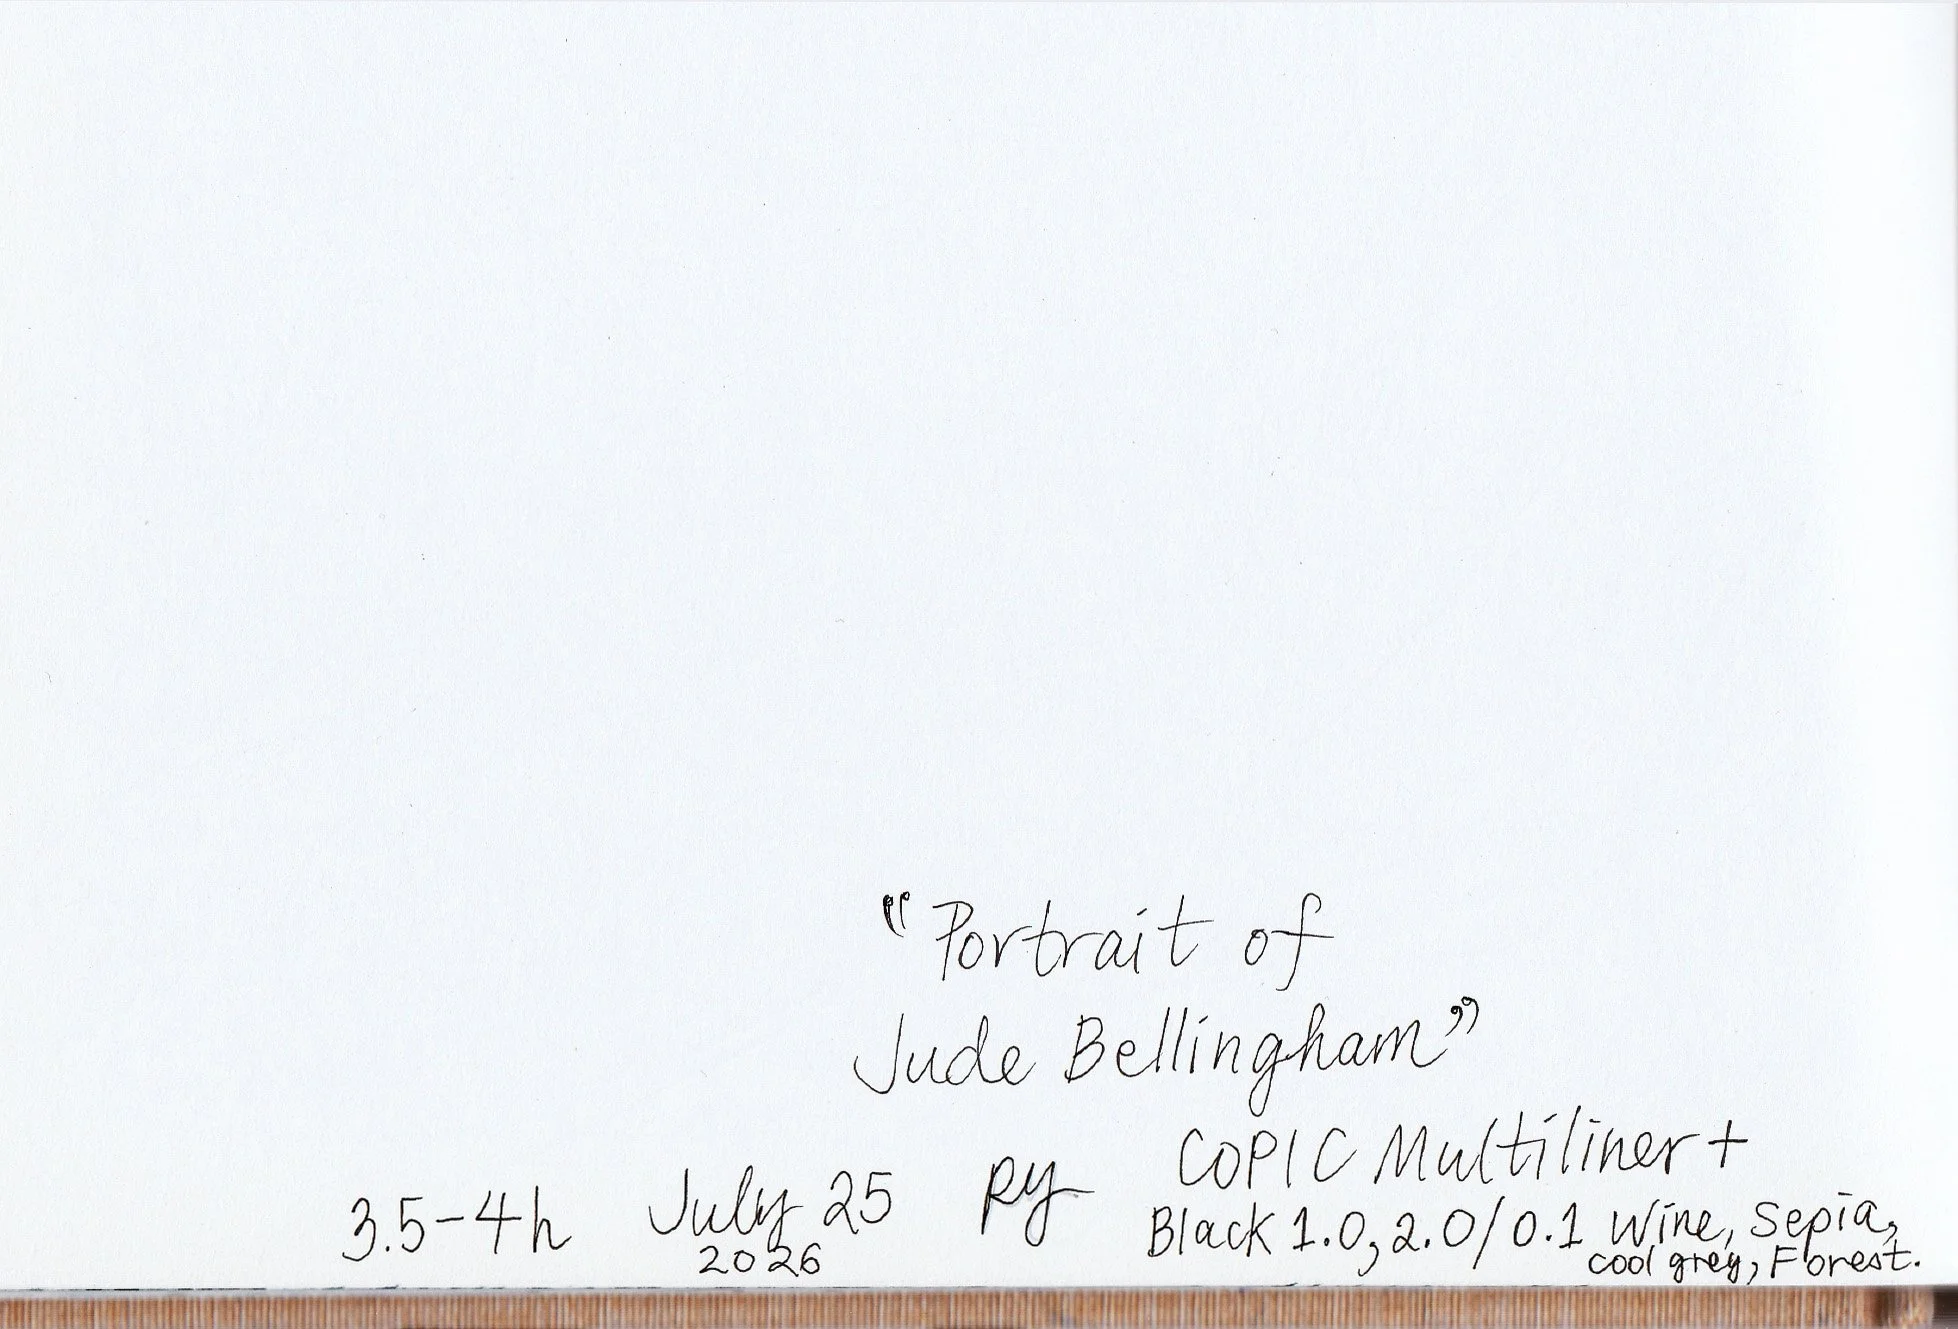 "Portrait of
Jude Bellingham"
COPIC Multiliner +
3.5-4h July 25 Ry Black 1.0, 2.0/0.1 Wine, Sepia,
2026 cool grey, Forest.